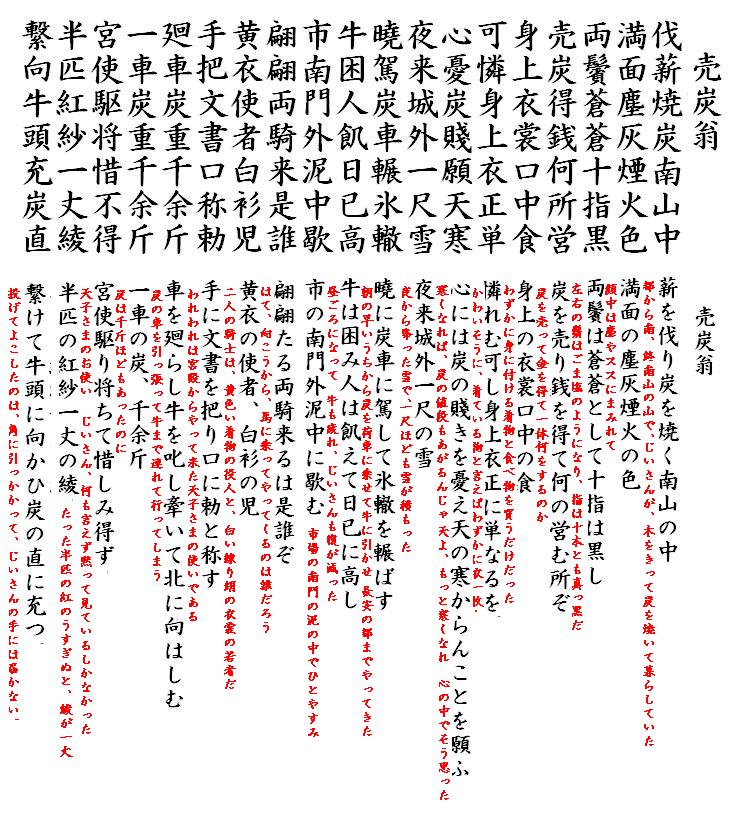 売炭翁
伐薪焼炭南山中
満面塵灰煙火色
両鬢蒼蒼十指黒
売炭得銭何所営
身上衣裳口中食
可憐身上衣正単
心憂炭賤願天寒
夜来城外一尺雪
曉駕炭車輾氷轍
牛困人飢日已高
市南門外泥中歇
翩翩両騎来是誰
黄衣使者白衫児
手把文書口称勅
廻車炭重千余斤
一車炭重千余斤
宮使駆将惜不得
半匹紅紗一丈綾
繋向牛頭充炭直
売炭翁
薪を伐り炭を焼く南山の中
都から南、終南山の山で、じいさんが、木をきって炭を焼いて暮らしていた
満面の塵灰煙火の色
顔中は塵やススにまみれて
両鬢は蒼蒼として十指は黒し
左右の鬢はごま塩のようになり、指は十本とも真っ黒だ
炭を売り銭を得て何の営む所ぞ
炭を売って金を得て一体何をするのか
身上の衣裳口中の食
わずかに身に付ける着物と食べ物を買うだけだった
憐れむ可し身上衣正に単なるを
かわいそうに、着ている物と言えばわずかに衣一枚、
心には炭の賤きを憂え天の寒からんことを願ふ
寒くなれば、炭の値段もあがるんじゃ天よ、もっと寒くなれ 心の中でそう思った
夜来城外一尺の雪
夜から降った雪で、一尺ほども雪が積もった
曉に炭車に駕して氷轍を輾ばす
朝の早いうちから炭を荷車に乗せて牛に引かせ 長安の都までやってきた
牛は困み人は飢えて日已に高し
昼ごろになって 牛も疲れ、じいさんも腹が減った
市の南門外泥中に歇む
市場の南門の泥の中でひとやすみ
翩翩たる両騎来るは是誰ぞ
はて、向こうから、馬に乗ってやってくるのは誰だろう
黄衣の使者、白衫の児
二人の騎士は、黄色い着物の役人と、白い練り絹の衣裳の若者だ
手に文書を把り口に勅と称す
われわれは宮殿からやって来た天子さまの使いである
車を廻らし牛を叱し牽いて北に向はしむ
炭の車を引っ張って牛まで連れて行ってしまう
一車の炭、千余斤
炭は千斤ほどもあったのに
宮使駆り将ちて惜しみ得ず
天子さまのお使い じいさん、何も言えず黙って見ているしかなかった
半匹の紅紗一丈の綾
たった半匹の紅のうすぎぬと、綾が一丈
繋けて牛頭に向かひ炭の直に充つ
投げてよこしたのは、角に引っかかって、じいさんの手には届かない。